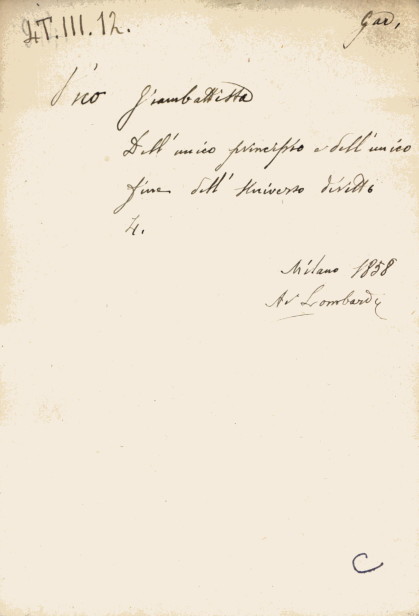 4T.III.12.
Gar,
Vico Giambattista
Dell'unico principio e dell'unico
fine dell'Universo diritto
4.
Milano 1858
Lombardi
C